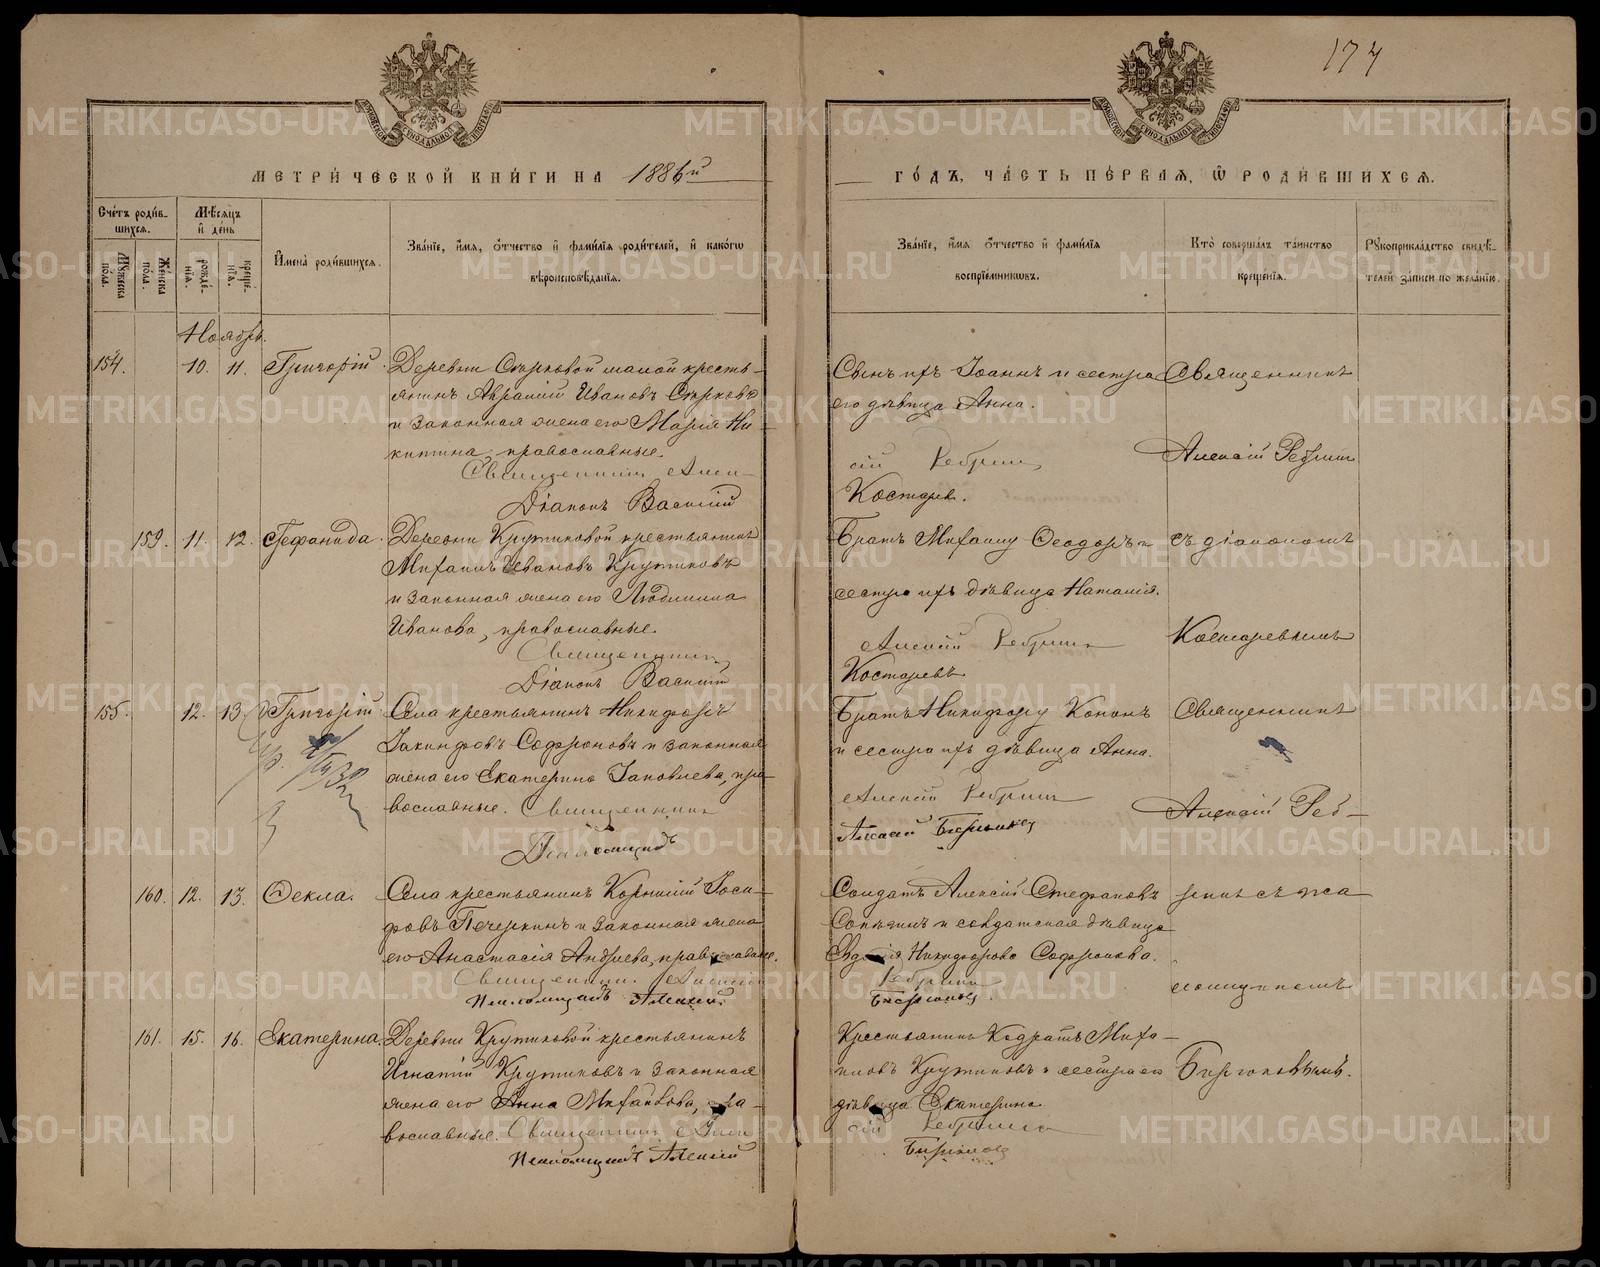 174
МЕТРИ́ЧЕСКОЙ КНИ́ГИ НА 1886й
ГО́ДЪ, ЧА́СТЬ ПЕ́РВАЯ, Ѿ РОДИ́ВШИХСЯ.
Сче́тъ роди́в-
шихся.
Мѣ́сяцъ
и҆ де́нь
Мꙋ́жеска
по́ла.
Же́нска
по́ла.
рожде́-
нїя.
креще́-
нїя.
И҆мена̀ роди́вшихся.
Зва́нїе, и҆́мя, ѻ҆́тчество и҆ фами́лїя роди́телей, и҆ како́гѡ
вѣроисповѣ́данїя.
Зва́нїе, и҆́мя ѻ҆́тчество и҆ фами́лїя
воспрїе́мникѡвъ.
Кто̀ соверша́лъ та́инство
креще́нїя.
Рꙋкоприкла́дство свидѣ́-
телей за́писи по жела́нїю.
Ноябрь.
154. 10. 11. Григорій. Деревни Старковой малой кресть-
янинъ Авраамій Ивановъ Старковъ
и законная жена его Марія Ни-
китина, православные.
Священникъ Алек-
Діаконъ Василій
Сынъ ихъ Іоаннъ и сестра
его дѣвица Анна.
сій Ребринъ
Костарев.
Священникъ
Алексій Ребринъ
159. 11. 12. Стефанида. Деревни Крутиковой крестьянинъ
Михаилъ Ивановъ Крутиковъ
и законная жена его Людмила
Иванова, православные.
Священникъ
Діаконъ Василій
Братъ Михаилу Ѳеодоръ и
сестра ихъ дѣвица Наталія.
Алексій Ребринъ
Костаревъ
съ діакономъ
Костаревымъ
155. 12. 13. Григорій Села крестьянинъ Никифоръ
Іакинфовъ Софроновъ и законная
жена его Екатерина Іаковлева, пра-
вославные. Священникъ
Псаломщикъ
Братъ Никифору Кононъ
и сестра ихъ дѣвица Анна.
Алексій Ребринъ
Алексій
Священникъ
Алексій Реб-
160. 12. 13. Ѳекла. Села крестьянинъ Корнилій Іоси-
фовъ Печеркинъ и законная жена
его Анастасія Андреева, православные.
Священник. Алексій
Псаломщикъ Алексій
Солдатъ Алексій Стефановъ
и солдатская дѣвица
Никифорова Софронова.
Ребринъ
ринъ съ пса
ломщикомъ
161. 15. 16. Екатерина. Деревни Крутиковой крестьянинъ
Игнатій Крутиковъ и законная
жена его Анна Михайлова, пра-
вославные. Священникъ Алек
Псаломщикъ Алексій
Крестьянинъ Кодратъ Миха-
иловъ Крутиковъ и сестра его
дѣвица Екатерина
сій Ребринъ